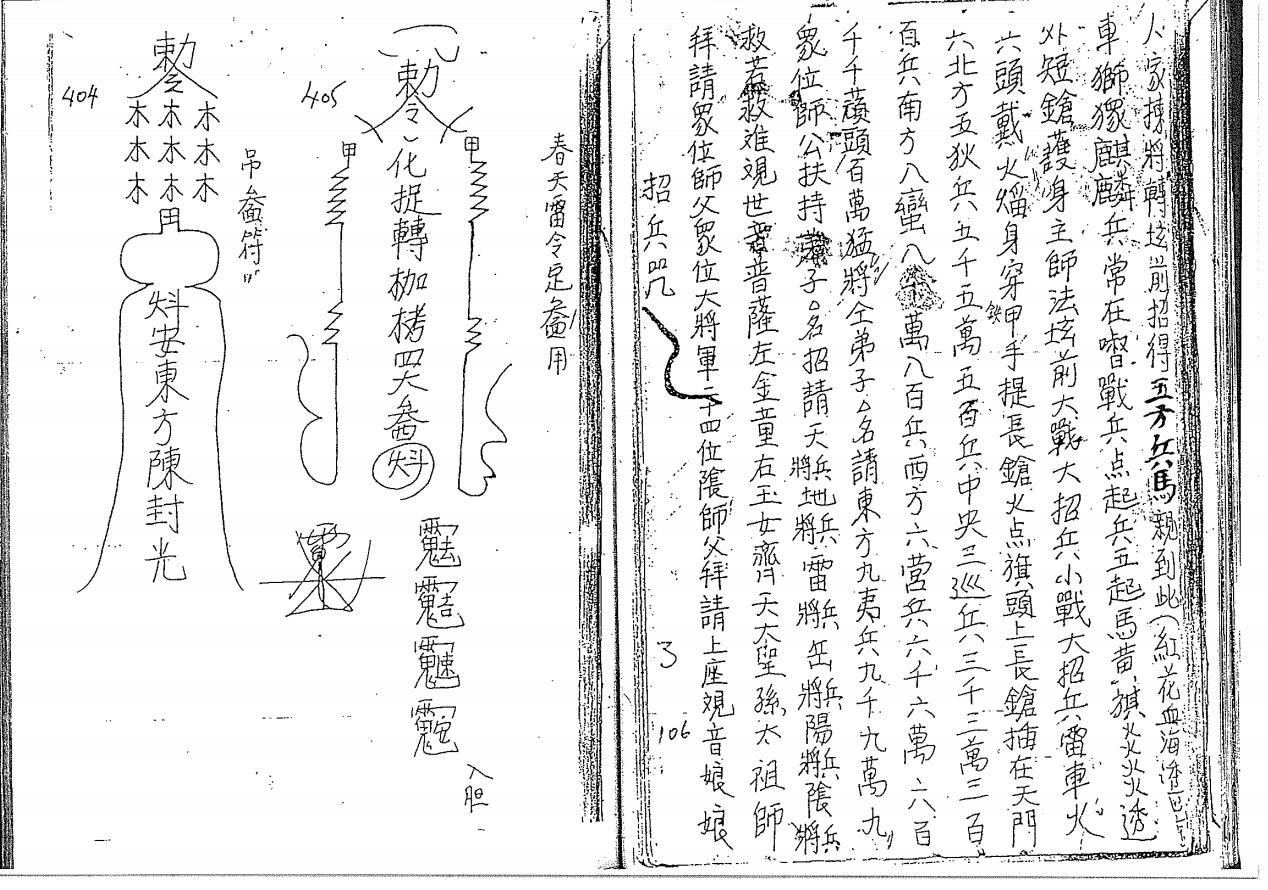 人家揀將轉壇前招得五方兵馬親到此(紅花血海透
車獅𧴀麒麟兵常在嘈戰兵点起兵五起馬黃旗火火火火透
外短鎗護身主師法壇前大戰大招兵小戰大招兵雷車火
六頭戴火焰身穿鉄甲手提長鎗火点旗頭上長鎗插在天門
六北方五狄兵五千五萬五百兵中央三巡兵三千三萬三百
百兵南方八蠻八千萬八百兵西方六营兵六千六萬六百
千千蔴頭百萬猛將仝弟子△名請東方九夷兵九千九萬九
眾位師公扶持弟子△名招請天兵將地兵將雷兵將岳兵將陽兵將陰兵將
救若救难观世音普薩左金童右玉女齊天大聖孫太祖師
拜請眾位師父眾位大將軍二十四位陰師父拜請上座观音娘娘
招兵咒
3
106
春天雷令定盎用
405
勅令
甲
甲
化捉轉枷栲四大盎
入胆
吊盎符
404
勅令
木木木
木木木
木木木
甲
安東方陳封光